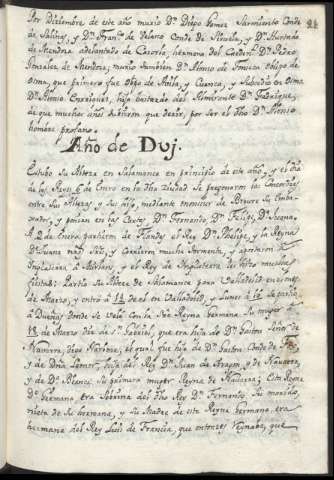 Por Diziembre de este año murio Dn. Diego Gomez Sarmiento Conde
de Salinas, y Dn. Franco. de Velasco Conde de Siruela, y Dn. Hurtado
de Mendoza adelantado de Cazorla, hermano del Carden.l Dn. Pedro
Gonzalez de Mendoza; murio tambien Dn. Alonso de Fonseca Obispo de
Osma, que primero fue Obpo de Avila, y Cuenca, y Subcedio en Osma
Dn. Alonso Enrriquez, hijo bastardo del Almirante Dn. Fadrique,
de que muchos años tubieron que dezir, por ser el dho Dn. Alonso
hombre profano.
Año de Dvj.
Estubo Su Alteza en Salamanca en principio de este año, y el dia
de los Reyes 6 de Enero en la dha Ziudad se pregonaron las Concordias
entre Sus Altezas, y Sus hijos, mediante monsiur de Beure su Embax-
ador, y ponian en las Cartas Dn. Fernando, Dn. Felipe, Da. Juana.
A 2 de Enero partieron de Flandes el Rey Dn. Phelipe, y la Reyna
Da. Juana nros Sres, y Corrieron mucha tormenta, y aportaron a
Inglaterra a
y el Rey de Inglaterra les hizo muchas
fiestas: Partio Su Alteza de Salamanca para Valladolid en
de Marzo, y entro a 14 de el en Valladolid, y Lunes a 16 se partio
a Dueñas donde se veló con la Sra Reyna Germana Su muger a
18 de Marzo dia de Sn. Gabriel, que era hija de Dn. Gaston Señor de
Navarra, digo Narbona, el qual fue hijo de Dn. Gaston Conde de Fox,
y de Dña Leonor, hija del Rey Dn. Juan de Aragon, y de Navarra,
y de Da. Blanca Su primera muger Reyna de Navarra; Esta Reyna
Da. Germana era Sobrina del dho Rey Dn. Fernando Su marido,
nieta de Su hermana, y Su Madre de esta Reyna Germana era
hermana del Rey Luis de Francia, que entonzes Reynaba, que